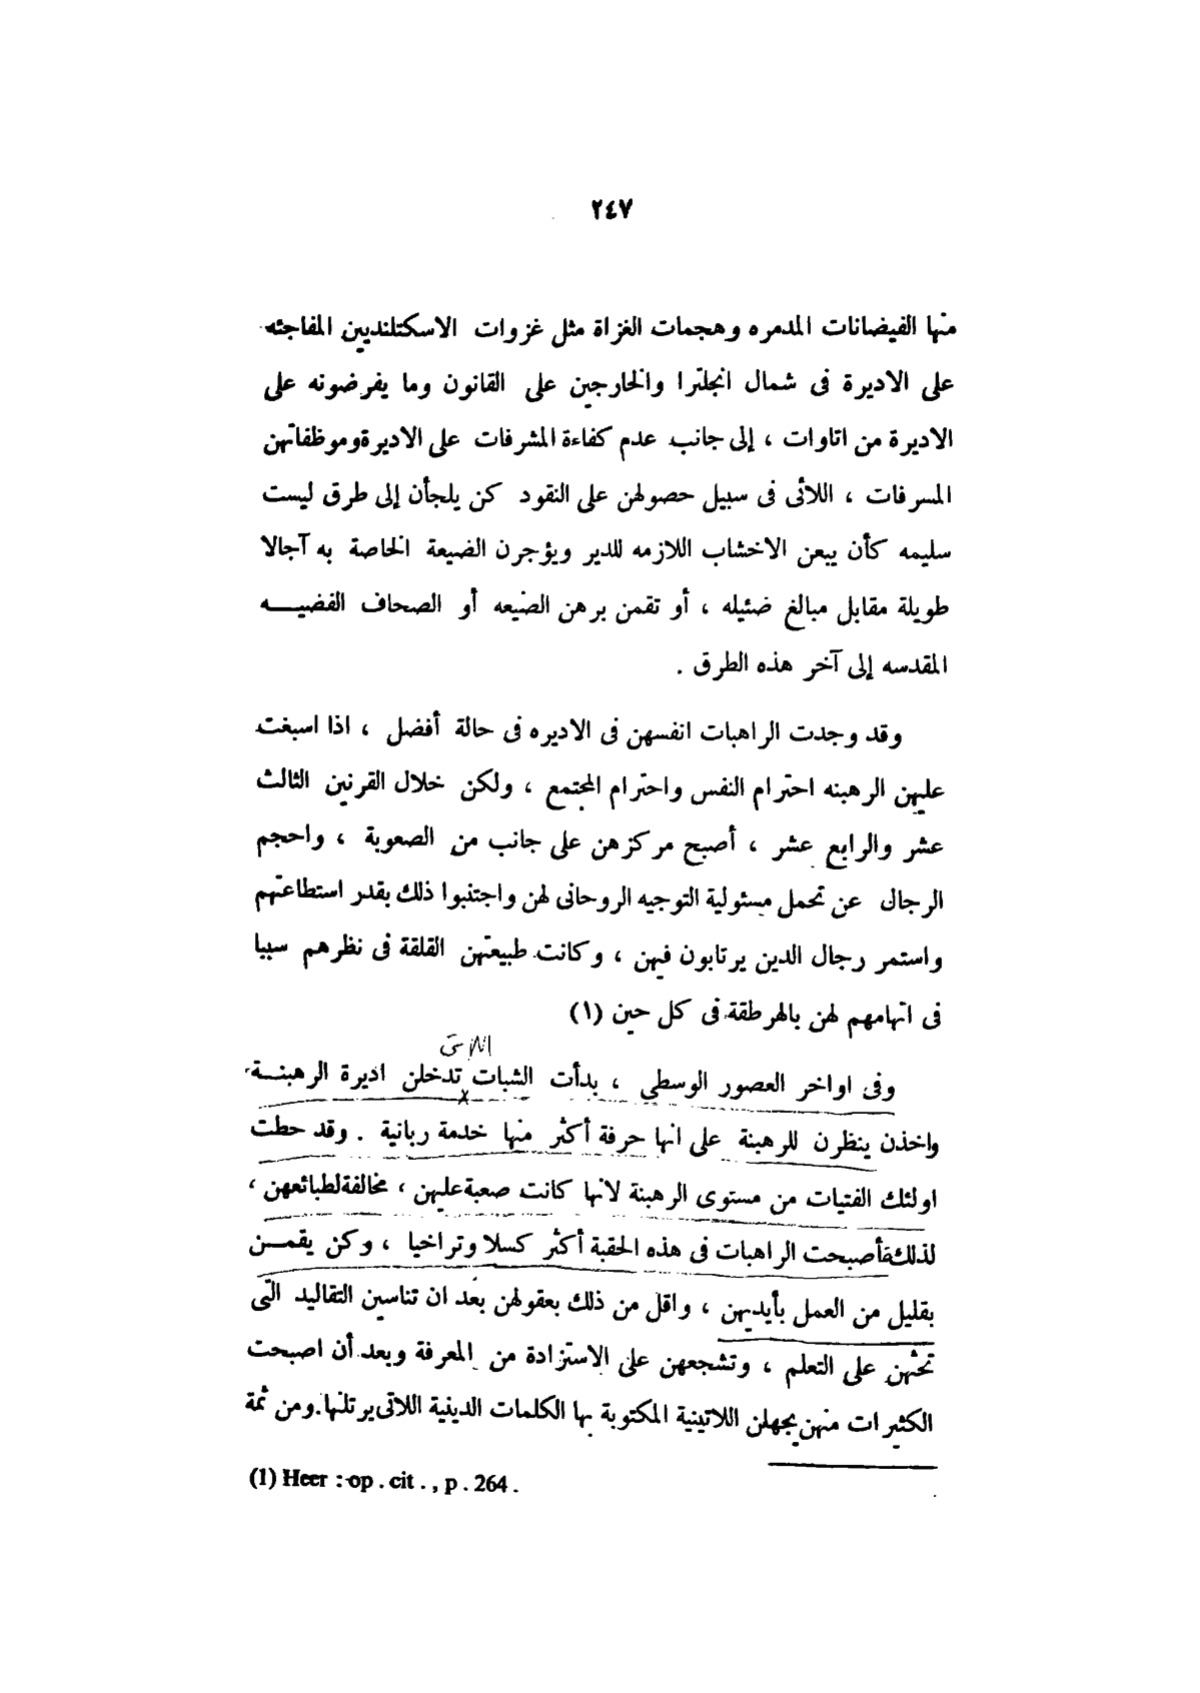 ٢٤٧
منها الفيضانات المدمره وهجمات الغزاة مثل غزوات الاسكتلنديين المفاجئه
على الاديرة فى شمال انجلترا والخارجين على القانون وما يفرضونه على
الاديرة من اتاوات ، إلى جانب عدم كفاءة المشرفات على الاديرةوموظفاتهن
المسرفات ، اللائى فى سبيل حصولهن على النقود كن يلجأن إلى طرق ليست
سليمه كأن يبعن الاخشاب اللازمه للدير ويؤجرن الضيعة الخاصة به آجالا
طويلة مقابل مبالغ ضئيله ، أو تقمن برهن الضيعه أو الصحاف الفضيـــه
المقدسه إلى آخر هذه الطرق .
وقد وجدت الراهبات انفسهن فى الاديره فى حالة أفضل ، اذا اسبغت
عليهن الرهبنه احترام النفس واحترام المجتمع ، ولكن خلال القرنين الثالث
عشر والرابع عشر ، أصبح مركزهن على جانب من الصعوبة ، واحجم
الرجال عن تحمل مسئولية التوجيه الروحانى لهن واجتنبوا ذلك بقدر استطاعتهم
واستمر رجال الدين يرتابون فيهن ، وكانت طبيعتهن القلقة فى نظرهم سببا
فى اتهامهم لهن بالهرطقة فى كل حين (١)
اللاتى
وفى اواخر العصور الوسطي ، بدأت الشبات تدخلن اديرة الرهبنــة
واخذن ينظرن للرهبنة على انها حرفة أكثر منها خدمة ربانية . وقد حطت
اولئك الفتيات من مستوى الرهبنة لانها كانت صعبةعليهن ، مخالفةلطبائعهن ،
لذلك فأصبحت الراهبات فى هذه الحقبة أكثر كسلا وتراخيا ، وكن يقمــن
بقليل من العمل بأيديهن ، واقل من ذلك بعقولهن بعد ان تناسين التقاليد التى
تحثهن على التعلم ، وتشجعهن على الاستزادة من المعرفة وبعد أن اصبحت
الكثيرات منهن يجهلن اللاتينية المكتوبة بها الكلمات الدينية اللاتى يرتلنها.ومن ثمة
(1) Heer : op . cit . , p . 264 .